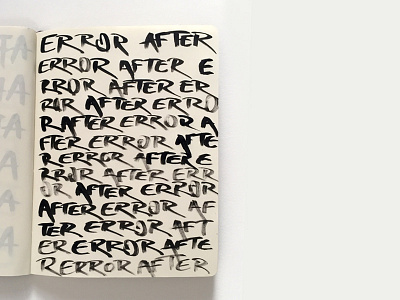 ERROR AFTER
ERROR AFTER E
RROR AFTER ER
ROR AFTER ERRO
R AFTER ERROR A
FTER ERROR AFTE
R ERROR AFTER E
RROR AFTER ERR
OR AFTER ERROR
AFTER ERROR AF
TER ERROR AFT
ER ERROR AFTE
R ERROR AFTER